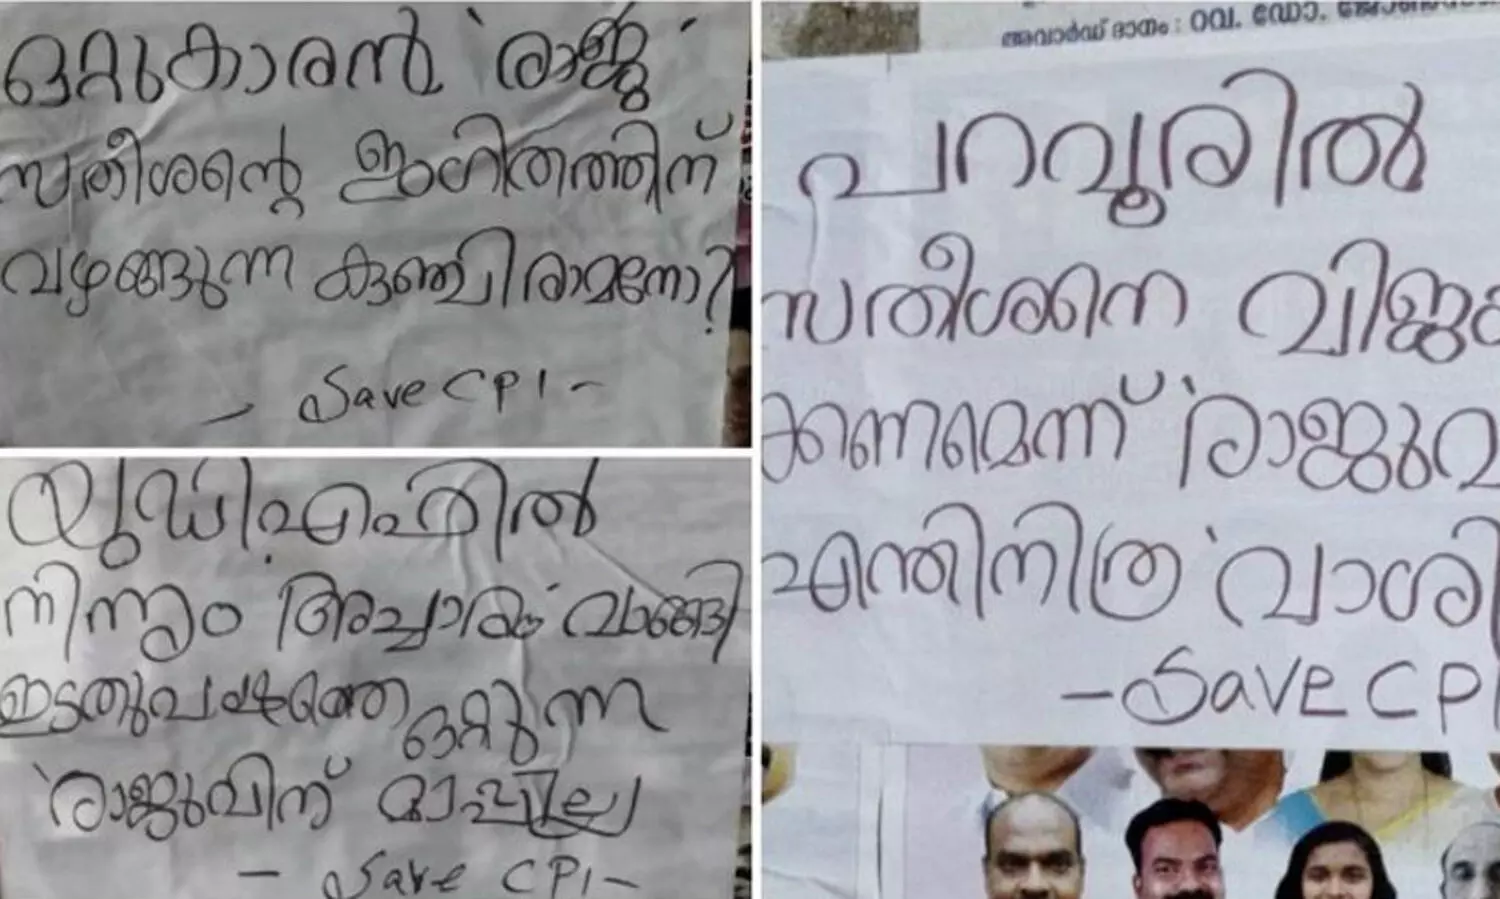 ഒറ്റുകാരൻ 'രാജു'
സതീശന്റെ ഇംഗിതത്തിന്
വഴങ്ങുന്ന കുഞ്ചിരാമനോ?
- Save CPI -
യുഡിഎഫിൽ
നിന്നും 'അച്ചാരം' വാങ്ങി
ഇടതുപക്ഷത്തെ ഒറ്റുന്ന
'രാജുവിന്' മാപ്പില്ല
- Save CPI -
അവാർഡ് ദാനം : റവ. ഡോ.
പറവൂരിൽ
സതീശനെ വിജയി
ക്കണമെന്ന് 'രാജുവ
എന്തിനിത്ര 'വാശി
- Save CPI